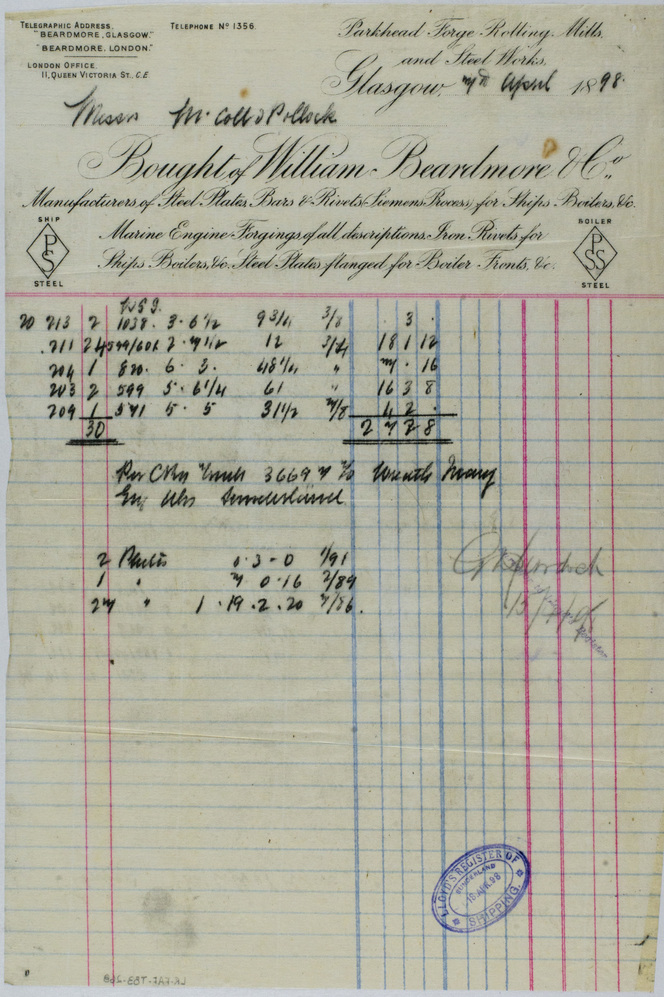 TELEGRAPHIC ADDRESS.
"BEARDMORE, GLASGOW."
"BEARDMORE. LONDON."
LONDON OFFICE.
11, QUEEN VICTORIA ST., C.E.
TELEPHONE Nº 1356.
Parkhead Forge Rolling Mills,
and Steel Works,
Glasgow, 7th April 1898.
Messrs McColl & Pollock
Bought of William Beardmore & Co.,
Manufacturers of Steel Plates, Bars & Rivets (Siemens Process) for Ships Boilers, &c.
Marine Engine Forgings of all descriptions. Iron Rivets for
Ships Boilers, &c. Steel Plates flanged for Boiler Fronts, &c.
SHIP
PS
STEEL
BOILER
PSS
STEEL
20 213 2 1038. 3·6 1/2 9 3/4 3/8 · 3 ·
211 24 2·7 1/2 12 3/4 18 1 12
204 1 820. 6·3. 48 1/4 " 7 · 16
203 2 599 5·6 1/4 61 " 16 3 8
209 1 571 5·5 31 1/2 7/8 4 2 ·
30 2 7 2 8
Per C Ry Truck 36697
Sunderland
2 Plates 0·3-0 1/91
1 " 7 0·16 2/89
27 " 1·19·2·20 7/86.
LLOYD'S REGISTER OF SHIPPING.
SUNDERLAND
18 APR. 98